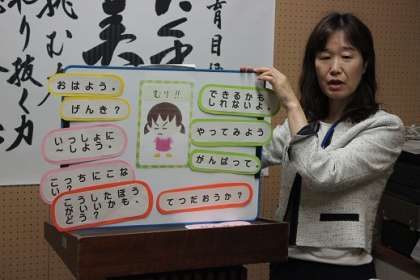 挑む力
やり抜く力
美
青
おはよう。
げんき？
いっしょに
～しよう。
こっちにこな
い？
こうしたほう
がいいかも、
どう？
むり!!
できるかも
しれないよ
やってみよう
がんばって
てつだおうか？